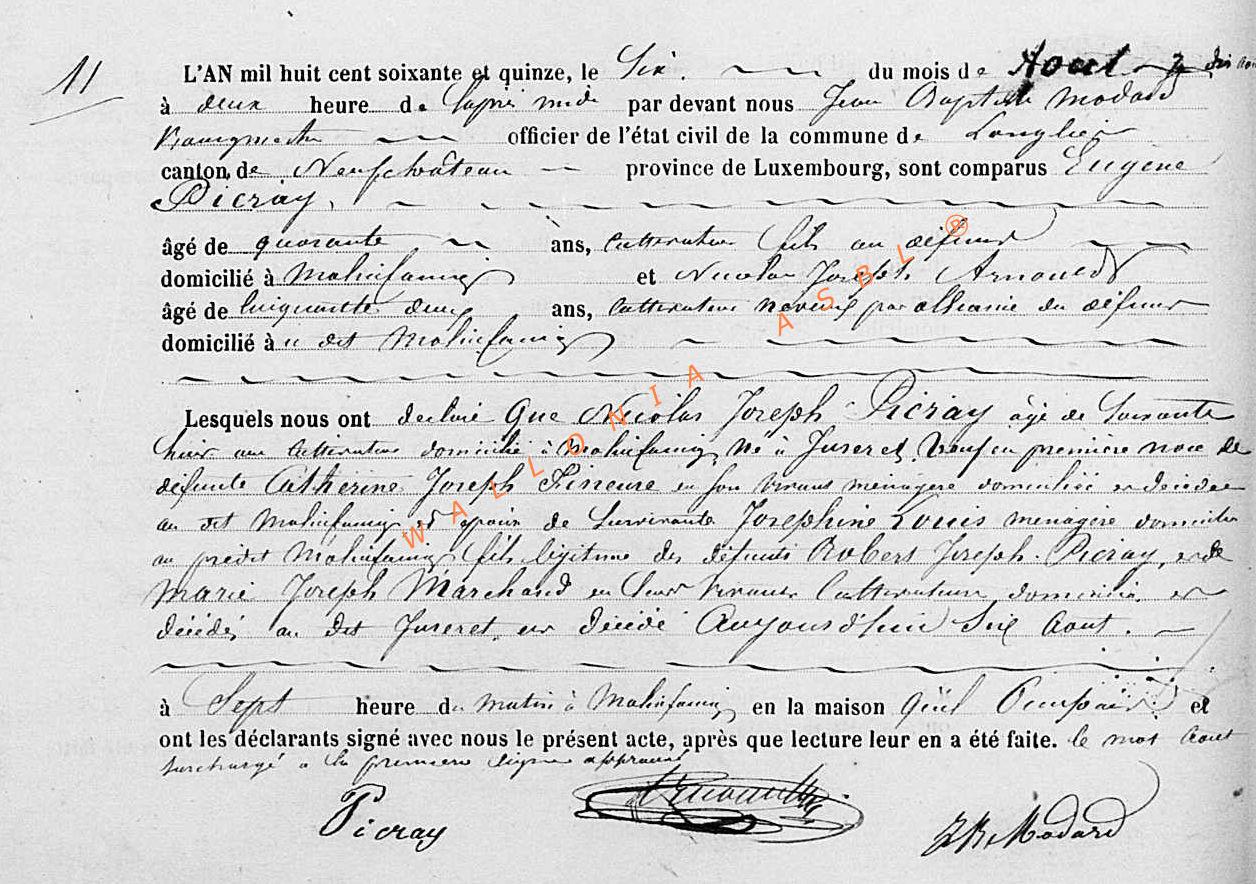 11
L'AN mil huit cent soixante et quinze, le Six. du mois de Aout
à deux heure de l'aprè midi par devant nous Jean Baptiste Modard
Bourgmestre officier de l'état civil de la commune de Longlier
canton de Neufchâteau province de Luxembourg, sont comparus Eugène
Picray,
âgé de quarante ans, cultivateur fils au défunt
domicilié à Molinfaing et Nicolas Joseph Arnould
âgé de cinquante deux ans, cultivateur neveux par alliance du défunt
domicilié à u dit Molinfaing
Lesquels nous ont declaré Que Nicolas Joseph Picray âgé de Soixante
huit ans cultivateur domicilié à Molinfaing, né à Juseret, Veuf en première noce de
défunte Catherine Joseph Fineuse en son vivant menagère domiciliée et décédée
au dit Molinfaing et epoux de Survivante Josephine Louis menagère domiciliée
au predit Molinfaing fils légitime des défunts Robert Joseph Picray, et de
Marie Joseph Marchand en leur vivant Cultivateurs domiciliés et
décédés au dit Juseret, est décédé Aujourd'hui Six Aout.
à Sept heure du matin à Molinfaing en la maison Qu'il Occupait et
ont les déclarants signé avec nous le présent acte, après que lecture leur en a été faite. le mot Aout
surchargé a la premiere ligne approuvé
Picray
JB Modard
WALLONIA ASBL ®